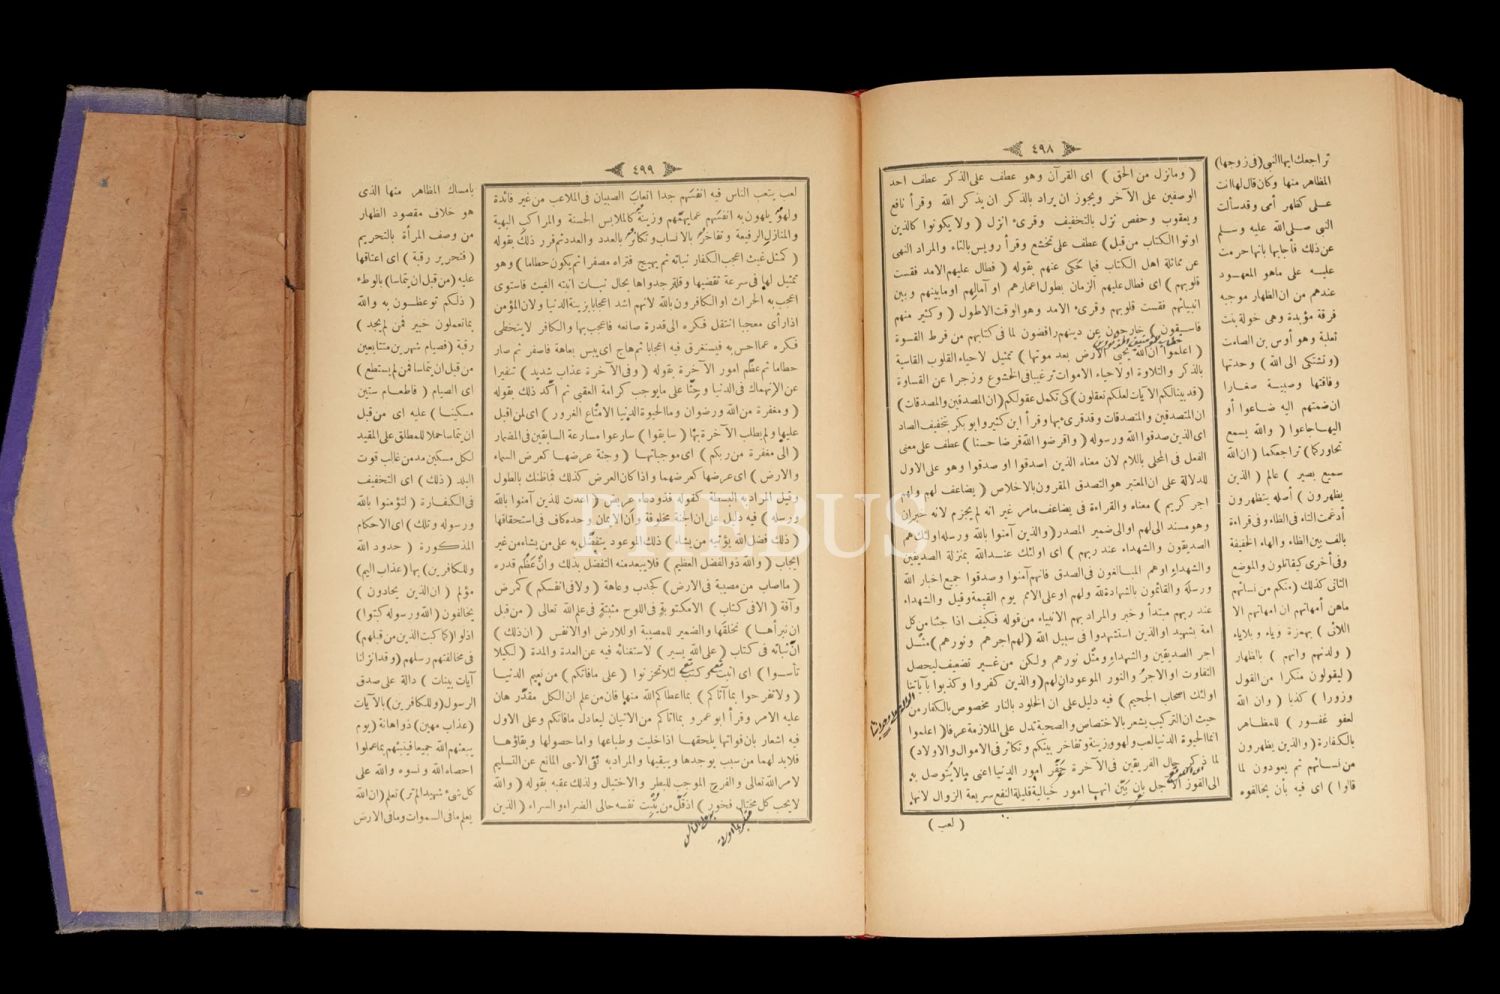 ٤٩٨
( ومانزل من الحق ) اى القرآن وهو عطف على الذكر عطف احد
الوصفين على الآخر ويجوز ان يراد بالذكر ان يذكر الله وقرأ نافع
ويعقوب وحفص نزل بالتخفيف وقرئ انزل ( ولا يكونوا كالذين
اوتوا الكتاب من قبل ) عطف على تخشع وقرأ رويس بالتاء والمراد النهى
عن مماثلة اهل الكتاب فيما حكى عنهم بقوله ( فطال عليهم الامد فقست
قلوبهم ) اى فطال عليهم الزمان بطول اعمارهم او آمالهم اوما بينهم وبين
انبيائهم فقست قلوبهم وقرئ الامد وهو الوقت الاطول ( وكثير منهم
فاسقون ) خارجون عن دينهم رافضون لما فى كتابهم من فرط القسوة
( اعلموا ان الله يحيى الارض بعد موتها ) تمثيل لاحياء القلوب القاسية
بالذكر والتلاوة اولاحياء الاموات ترغيبا فى الخشوع وزجرا عن القساوة
( قد بينا لكم الآيات لعلكم تعقلون ) كى تكمل عقولكم ( ان المصدقين والمصدقات )
ان المتصدقين والمتصدقات وقد قرئ بهما وقرأ ابن كثير وابو بكر بتخفيف الصاد
اى الذين صدقوا الله ورسوله ( واقرضوا الله قرضا حسنا ) عطف على معنى
الفعل فى المحلى باللام لان معناه الذين اصدقوا او صدقوا وهو على الاول
للدلالة على ان المعتبر هو التصدق المقرون بالاخلاص ( يضاعف لهم ولهم
اجر كريم ) معناه والقراءة فى يضاعف مامر غير انه لم يجزم لانه خبر ان
وهو مسند الى لهم او الى ضمير المصدر ( والذين آمنوا بالله ورسله اولئك هم
الصديقون والشهداء عند ربهم ) اى اولئك عند الله بمنزلة الصديقين
والشهداء اوهم المبالغون فى الصدق فانهم آمنوا وصدقوا جميع اخبار الله
ورسله والقائمون بالشهادة لله ولهم اوعلى الامم يوم القيمة وقيل والشهداء
عند ربهم مبتدأ وخبر والمراد بهم الانبياء من قوله فكيف اذا جئنا من كل
امة بشهيد او الذين استشهدوا فى سبيل الله ( لهم اجرهم ونورهم ) مثل
اجر الصديقين والشهداء ومثل نورهم ولكن من غير تضعيف ليحصل
التفاوت اوالاجر والنور الموعودان لهم ( والذين كفروا وكذبوا بآياتنا
اولئك اصحاب الجحيم ) فيه دليل على ان الخلود بالنار مخصوص بالكفار من
حيث ان التركيب يشعر بالاختصاص والصحبة تدل على الملازمة عرفا ( اعلموا
انما الحيوة الدنيا لعب ولهو وزينة وتفاخر بينكم وتكاثر فى الاموال والاولاد )
لما ذكر حال الفريقين فى الآخرة حقر امور الدنيا اعنى ما لا يتوصل به
الى الفوز الآجل بان بين انها امور خيالية قليلة النفع سريعة الزوال لانها
( لعب )
تراجعك ايها النبى ( فى زوجها )
المظاهر منها وكان قال لها انت
على كظهر أمى وقد سألت
النبى صلى الله عليه وسلم
عن ذلك فأجابها بانها حرمت
عليه على ماهو المعهود
عندهم من ان الظهار موجبه
فرقة مؤبدة وهى خولة بنت
ثعلبة وهو أوس بن الصامت
( وتشتكى الى الله ) وحدتها
وفاقتها وصبية صغارا
ان ضمتهم اليه ضاعوا أو
اليها جاعوا ( والله يسمع
تحاوركما ) تراجعكما ( ان الله
سميع بصير ) عالم ( الذين
يظهرون ) أصله يتظهرون
أدغمت التاء فى الظاء وفى قراءة
بالف بين الظاء والهاء الخفيفة
وفى أخرى كيقاتلون والموضع
الثانى كذلك ( منكم من نسائهم
ماهن أمهاتهم ان امهاتهم الا
اللائى ) بهمزة وياء وبلا ياء
( ولدنهم وانهم ) بالظهار
( ليقولون منكرا من القول
وزورا ) كذبا ( وان الله
لعفو غفور ) للمظاهر
بالكفارة ( والذين يظهرون
من نسائهم ثم يعودون لما
قالوا ) اى فيه بأن يخالفوه
٤٩٩
لعب يتعب الناس فيه انفسهم جدا اتعاب الصبيان فى الملاعب من غير فائدة
ولهو يلهون به انفسهم عما يهمهم وزينة كالملابس الحسنة والمراكب البهية
والمنازل الرفيعة وتفاخر بالانساب وتكاثر بالعدد والعدد ثم قرر ذلك بقوله
( كمثل غيث اعجب الكفار نباته ثم يهيج فتراه مصفرا ثم يكون حطاما ) وهو
تمثيل لها فى سرعة تقضيها وقلة جدواها بحال نبات انبته الغيث فاستوى
اعجب به الحراث او الكافرون بالله لانهم اشد اعجابا بزينة الدنيا ولان المؤمن
اذا رأى معجبا انتقل فكره الى قدرة صانعه فاعجب بها والكافر لا يتخطى
فكره عما احس به فيستغرق فيه اعجابا ثم هاج اى يبس بعاهة فاصفر ثم صار
حطاما ثم عظم امور الآخرة بقوله ( وفى الآخرة عذاب شديد ) تنفيرا
عن الانهماك فى الدنيا وحثا على مايوجب كرامة العقبى ثم اكد ذلك بقوله
( ومغفرة من الله ورضوان وما الحيوة الدنيا الا متاع الغرور ) اى لمن اقبل
عليها ولم يطلب الآخرة بها ( سابقوا ) سارعوا مسارعة السابقين فى المضمار
( الى مغفرة من ربكم ) اى موجباتها ( وجنة عرضها كعرض السماء
والارض ) اى عرضها كعرضهما واذا كان العرض كذلك فما ظنك بالطول
وقيل المراد به البسطة كقوله فذو دعاء عريض ( اعدت للذين آمنوا بالله
ورسله ) فيه دليل على ان الجنة مخلوقة وان الايمان وحده كاف فى استحقاقها
( ذلك فضل الله يؤتيه من يشاء ) ذلك الموعود يتفضل به على من يشاء من غير
ايجاب ( والله ذو الفضل العظيم ) فلا يبعد منه التفضل بذلك وان عظم قدره
( ما اصاب من مصيبة فى الارض ) كجدب وعاهة ( ولا فى انفسكم ) كمرض
وآفة ( الا فى كتاب ) الا مكتوبة فى اللوح مثبتة فى علم الله تعالى ( من قبل
ان نبرأها ) نخلقها والضمير للمصيبة او للارض او الانفس ( ان ذلك )
ان اثباته فى كتاب ( على الله يسير ) لاستغنائه فيه عن العدة والمدة ( لكيلا
تأسوا ) اى اثبت وكتب لئلا تحزنوا ( على مافاتكم ) من نعيم الدنيا
( ولا تفرحوا بما آتاكم ) بما اعطاكم الله منها فان من علم ان الكل مقدر هان
عليه الامر وقرأ ابو عمرو بما اتاكم من الاتيان ليعادل مافاتكم وعلى الاول
فيه اشعار بان فواتها يلحقها اذا خليت وطباعها واما حصولها وبقاؤها
فلا بد لهما من سبب يوجدها ويبقيها والمراد به نفى الاسى المانع عن التسليم
لامر الله تعالى والفرح الموجب للبطر والاختيال ولذلك عقبه بقوله ( والله
لا يحب كل مختال فخور ) اذ قل من يثبت نفسه حالى الضراء والسراء ( الذين
بامساك المظاهر منها الذى
هو خلاف مقصود الظهار
من وصف المرأة بالتحريم
( فتحرير رقبة ) اى اعتاقها
عليه ( من قبل ان يتماسا ) بالوطء
( ذلكم توعظون به والله
بما تعملون خبير فمن لم يجد )
رقبة ( فصيام شهرين متتابعين
من قبل ان يتماسا فمن لم يستطع )
اى الصيام ( فاطعام ستين
مسكينا ) عليه اى من قبل
ان يتماسا حملا للمطلق على المقيد
لكل مسكين مد من غالب قوت
البلد ( ذلك ) اى التخفيف
فى الكفارة ( لتؤمنوا بالله
ورسوله وتلك ) اى الاحكام
المذكورة ( حدود الله
وللكافرين ) بها ( عذاب اليم )
مؤلم ( ان الذين يحادون )
يخالفون ( الله ورسوله كبتوا )
اذلوا ( كما كبت الذين من قبلهم )
فى مخالفتهم رسلهم ( وقد انزلنا
آيات بينات ) دالة على صدق
الرسول ( وللكافرين ) بالآيات
( عذاب مهين ) ذو اهانة ( يوم
يبعثهم الله جميعا فينبئهم بما عملوا
احصاه الله ونسوه والله على
كل شئ شهيد الم تر ) تعلم ( ان الله
يعلم مافى السموات ومافى الارض
PHEBUS